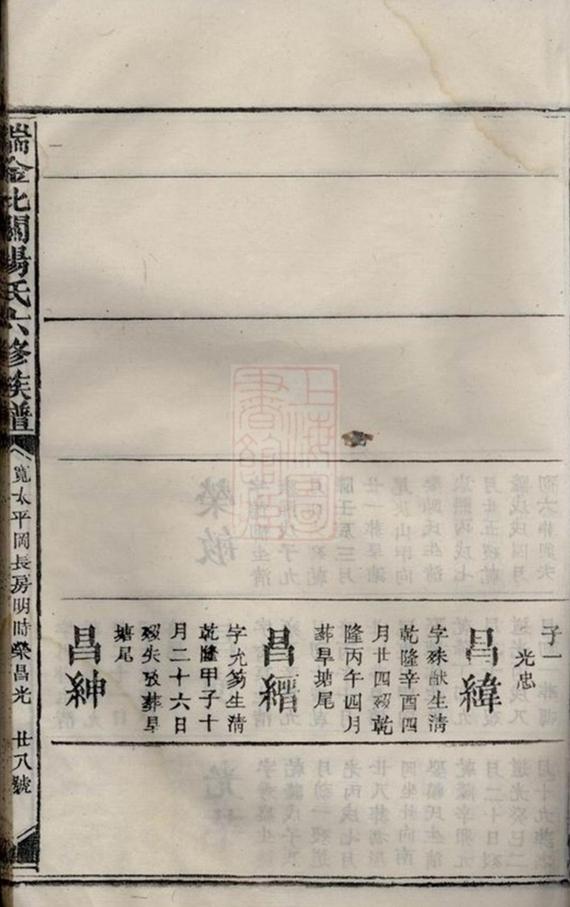 子一
光忠
昌緯
字殊猷生清
乾隆辛酉四
月廿四歿乾
隆丙午四月
葬旱塘尾
昌縉
字允笏生清
乾隆甲子十
月二十六日
歿失歿葬旱
塘尾
昌紳
瑞金北關楊氏六修族譜
寬太平岡長房明時榮昌光 廿八號
上海圖書館藏